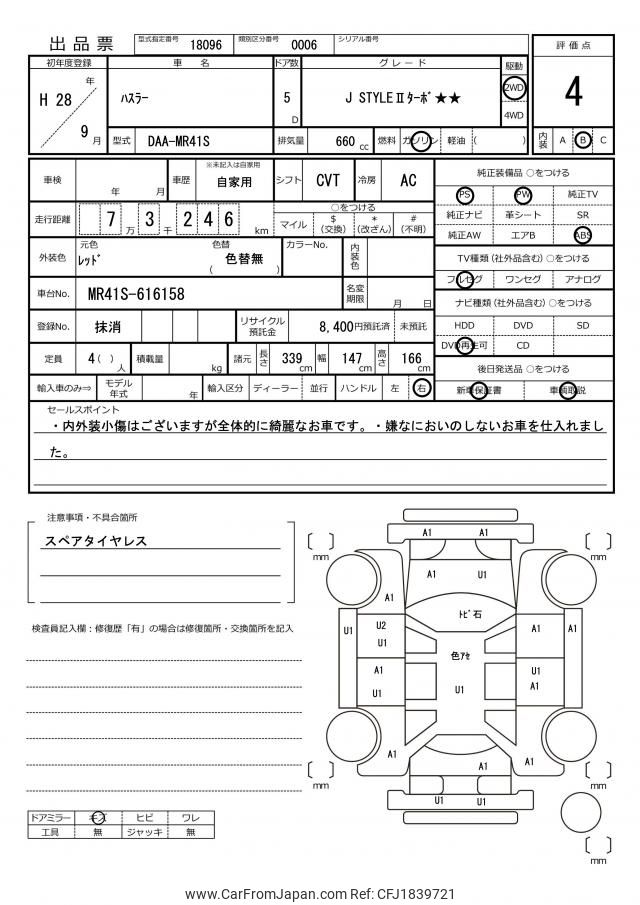 出品票
型式指定番号 18096 類別区分番号 0006 シリアル番号
評価点
4
内装 A B C
初年度登録 車名 ドア数 グレード 駆動
H 28 年 9 月
ハスラー
5 D
J STYLEⅡターボ★★
2WD
4WD
型式 DAA-MR41S 排気量 660 cc 燃料 ガソリン 軽油 ( )
車検 年 月 車歴 ※未記入は自家用 自家用 シフト CVT 冷房 AC
走行距離 7 万 3 千 2 4 6 km
○をつける
マイル $ (交換) * (改ざん) # (不明)
外装色 元色 レッド 色替 ( 色替無 ) カラーNo. 内装色
車台No. MR41S-616158 名変期限 月 日
登録No. 抹消 リサイクル預託金 8,400円預託済 未預託
定員 4( ) 人 積載量 kg 諸元 長さ 339 cm 幅 147 cm 高さ 166 cm
輸入車のみ⇒ モデル年式 年 輸入区分 ディーラー 並行 ハンドル 左 右
純正装備品 ○をつける
PS PW 純正TV
純正ナビ 革シート SR
純正AW エアB ABS
TV種類 (社外品含む) ○をつける
フルセグ ワンセグ アナログ
ナビ種類 (社外品含む) ○をつける
HDD DVD SD
DVD再生可 CD
後日発送品 ○をつける
新車保証書 車輌取説
セールスポイント
・内外装小傷はございますが全体的に綺麗なお車です。・嫌なにおいのしないお車を仕入れまし
た。
注意事項・不具合箇所
スペアタイヤレス
検査員記入欄:修復歴「有」の場合は修復箇所・交換箇所を記入
ドアミラー キズ ヒビ ワレ
工具 無 ジャッキ 無
A1 A1
mm mm
A1 U1
A1
トビ石
U1 U2 A1 A1
U1
色アセ
A1 U1
U1 U1 A1
A1 A1 A1
mm mm
U1 U1
mm
www.CarFromJapan.com Ref: CFJ1839721